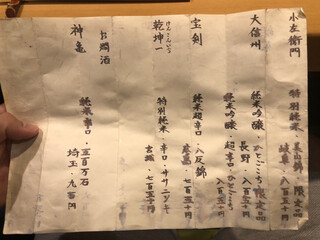 小左衛門
特別純米 美山錦 限定品
岐阜・八百五十円
大信州
純米吟醸 ひとごこち 限定品
長野・八百五十円
宝剣
純米吟醸・超辛口
純米超辛口・八反錦
広島・七百五十円
乾坤一
けんこんいち
特別純米・辛口・ササニシキ
宮城・七百五十円
お燗酒
神亀
純米辛口・五百万石
埼玉・九百円